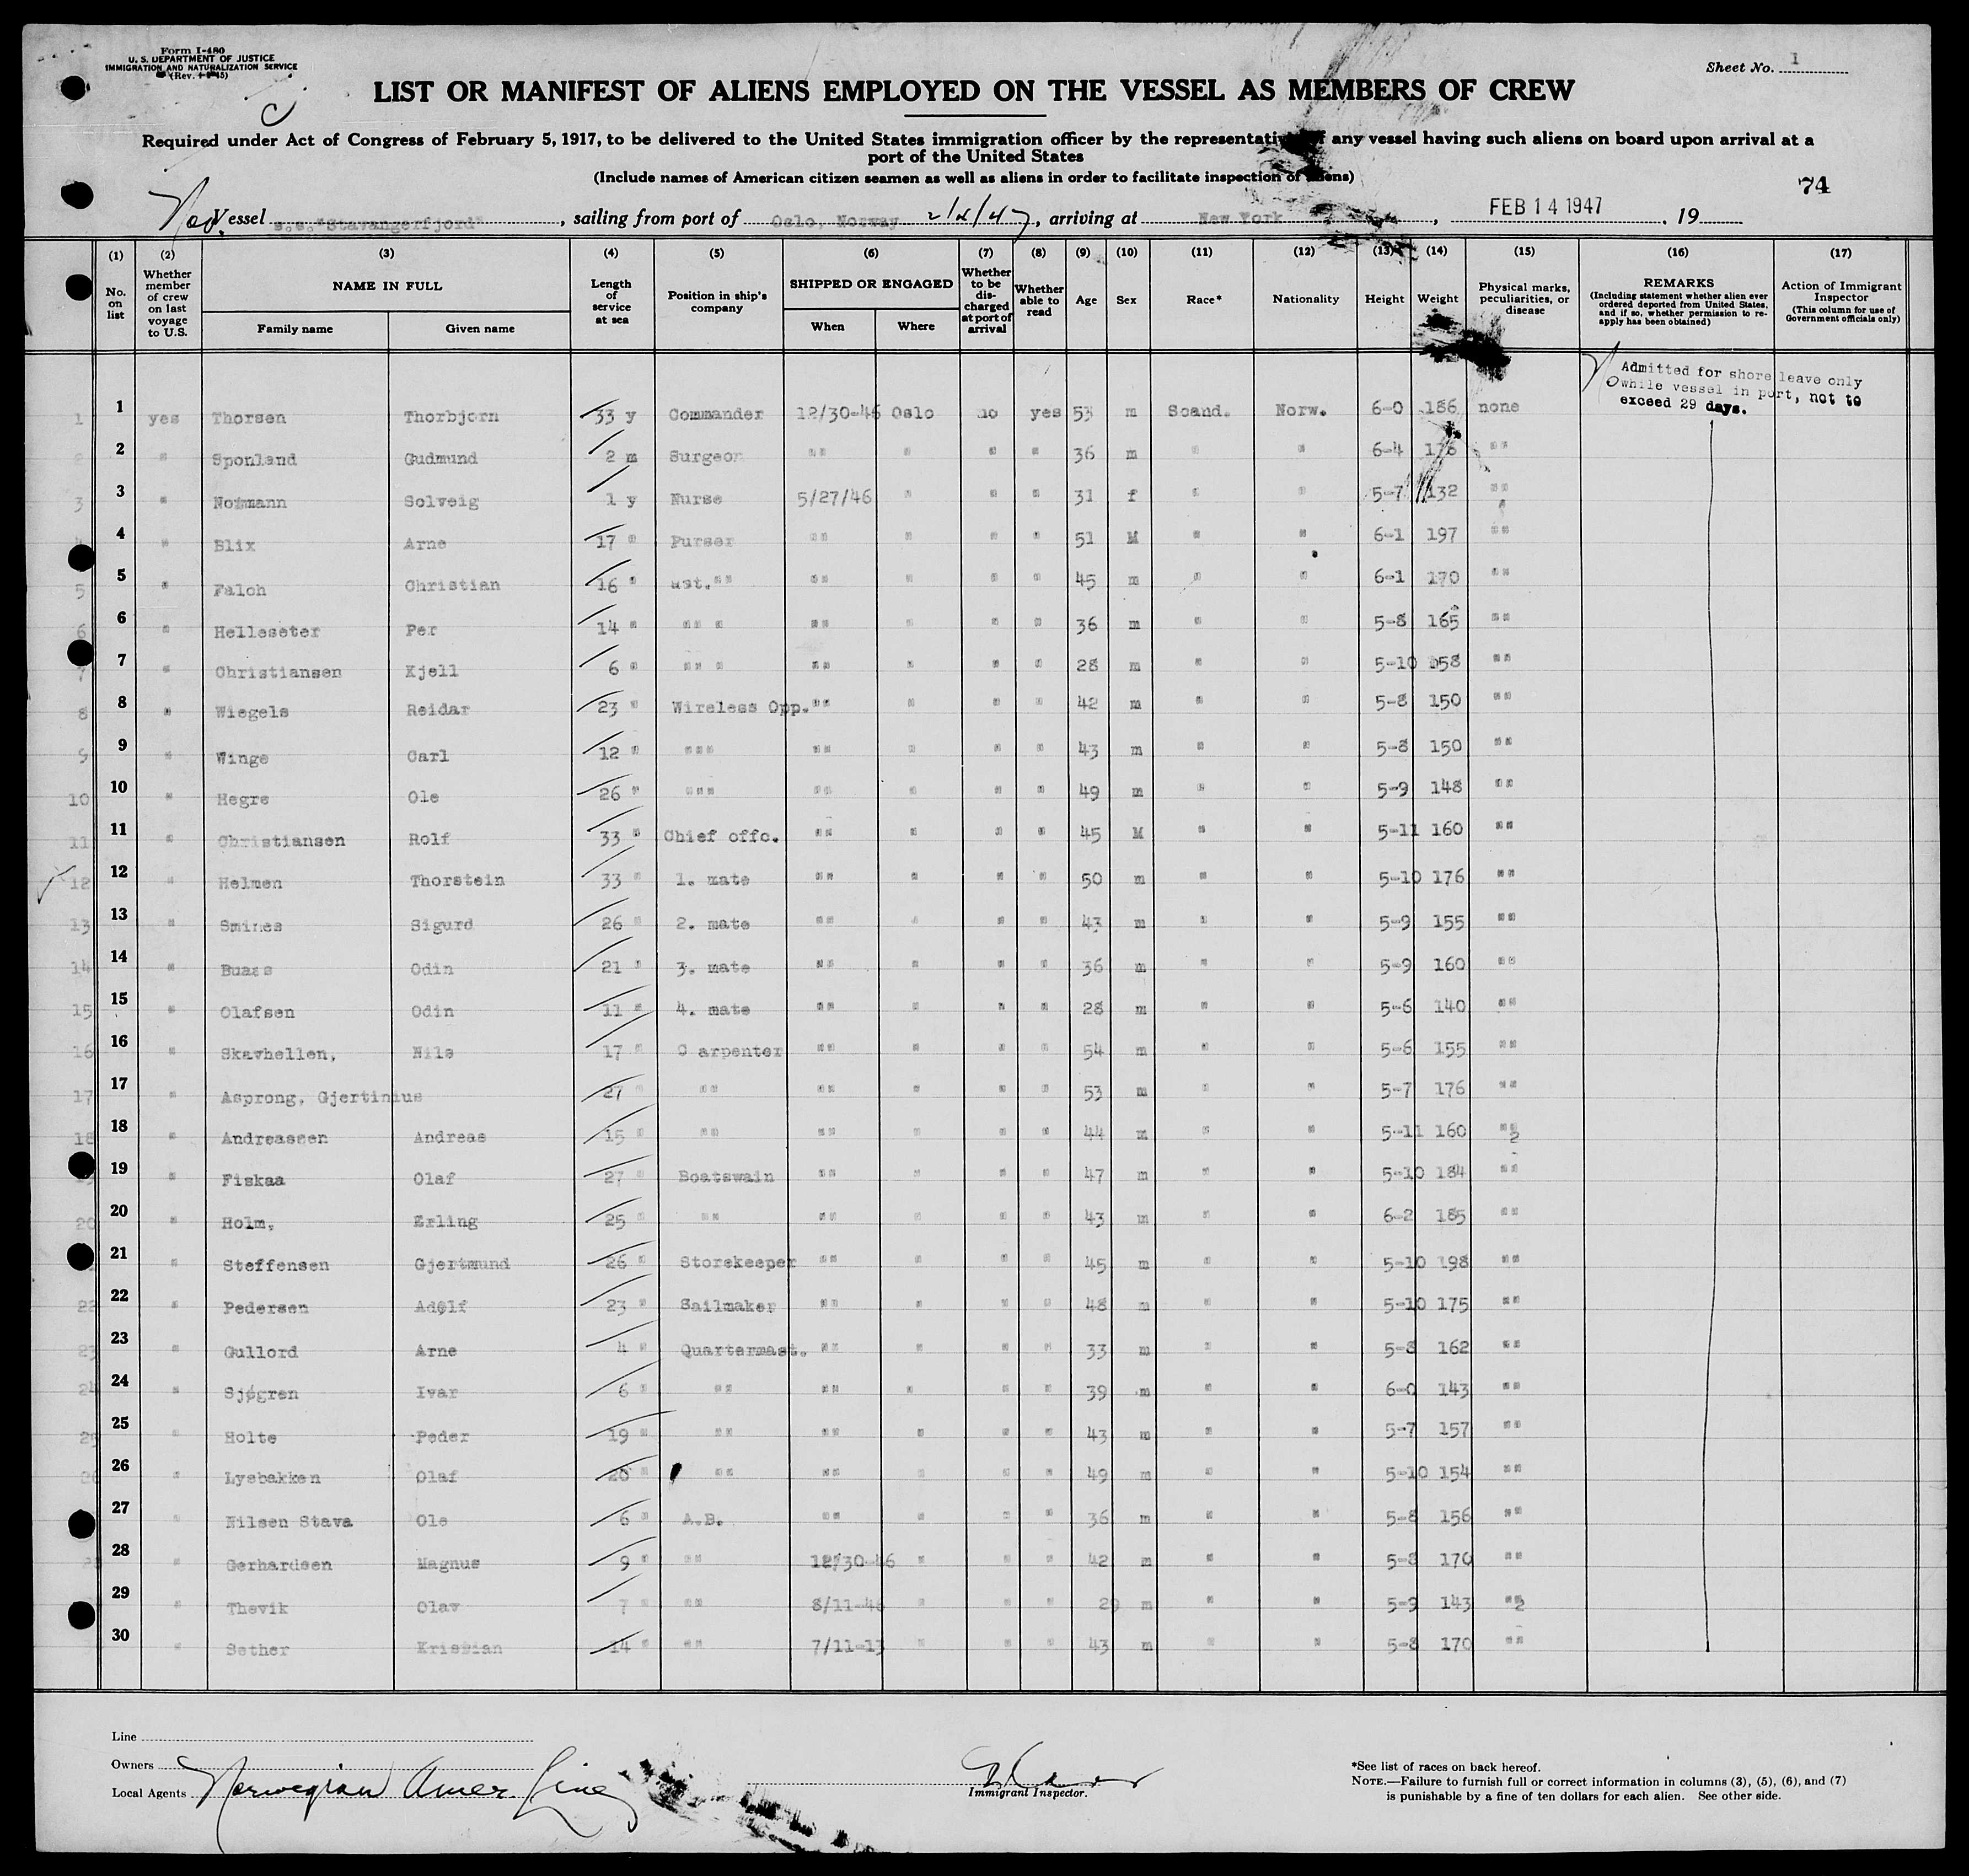 Form I-480
U. S. DEPARTMENT OF JUSTICE
IMMIGRATION AND NATURALIZATION SERVICE
Sheet No. 1
LIST OR MANIFEST OF ALIENS EMPLOYED ON THE VESSEL AS MEMBERS OF CREW
Required under Act of Congress of February 5, 1917, to be delivered to the United States immigration officer by the representative of any vessel having such aliens on board upon arrival at a
port of the United States
(Include names of American citizen seamen as well as aliens in order to facilitate inspection of aliens)
74
Nor. Vessel s.s."Stavangerfjord", sailing from port of Oslo, Norway 2/4/47, arriving at New York, FEB 14 1947, 19
(1) No. on list (2) Whether member of crew on last voyage to U.S. (3) NAME IN FULL Family name Given name (4) Length of service at sea (5) Position in ship's company (6) SHIPPED OR ENGAGED When Where (7) Whether to be discharged at port of arrival (8) Whether able to read (9) Age (10) Sex (11) Race* (12) Nationality (13) Height (14) Weight (15) Physical marks, peculiarities, or disease (16) REMARKS (Including statement whether alien ever ordered deported from United States, and if so, whether permission to re-apply has been obtained) (17) Action of Immigrant Inspector (This column for use of Government officials only)
Admitted for shore leave only
while vessel in port, not to
exceed 29 days.
1 yes Thorsen Thorbjorn 33 y Commander 12/30-46 Oslo no yes 53 m Scand. Norw. 6-0 186 none
2 " Sponland Gudmund 2 m Surgeon "" " " " 36 m " " 6-4 ""
3 " Solveig 1 y Nurse 5/27/46 " " " 31 f " " 5-7 132 ""
4 " Blix Arne 17 " Purser "" " " " 51 M " " 6-1 197 ""
5 " Falch Christian 16 " ast."" "" " " " 45 m " " 6-1 170 ""
6 " Helleseter Per 14 " "" " "" " " " 36 m " " 5-8 165 ""
7 " Christiansen Kjell 6 " "" " "" " " " 28 m " " 5-10 158 ""
8 " Wiegels Reidar 23 " Wireless Opp. "" " " " 42 m " " 5-8 150 ""
9 " Winge Carl 12 " """ "" " " " 43 m " " 5-8 150 ""
10 " Hegre Ole 26 " """ "" " " " 49 m " " 5-9 148 ""
11 " Christiansen Rolf 33 " Chief offc. "" " " " 45 M " " 5-11 160 ""
12 " Helmen Thorstein 33 " 1. mate "" " " " 50 m " " 5-10 176 ""
13 " Smines Sigurd 26 " 2. mate "" " " " 43 m " " 5-9 155 ""
14 " Buaas Odin 21 " 3. mate "" " " " 36 m " " 5-9 160 ""
15 " Olafsen Odin 11 " 4. mate "" " " " 28 m " " 5-6 140 ""
16 " Skavhellen, Nils 17 " C arpenter "" " " " 54 m " " 5-6 155 ""
17 " Asprong, Gjertinius 27 " "" "" " " " 53 m " " 5-7 176 ""
18 " Andreassen Andreas 15 " "" "" " " " 44 m " " 5-11 160 ""
19 " Fiskaa Olaf 27 " Boatswain "" " " " 47 m " " 5-10 184 ""
20 " Holm, Erling 25 " "" "" " " " 43 m " " 6-2 185 ""
21 " Steffensen Gjertmund 26 " Storekeeper "" " " " 45 m " " 5-10 198 ""
22 " Pedersen Adolf 23 " Sailmaker "" " " " 48 m " " 5-10 175 ""
23 " Gullord Arne 4 " Quartermast. "" " " " 33 m " " 5-8 162 ""
24 " Sjøgren Ivar 6 " "" "" " " " 39 m " " 6-0 143 ""
25 " Holte Peder 19 " "" "" " " " 43 m " " 5-7 157 ""
26 " Lysbakken Olaf 20 " "" "" " " " 49 m " " 5-10 154 ""
27 " Nilsen Stava Ole 6 " A.B. "" " " " 36 m " " 5-8 156 ""
28 " Gerhardsen Magnus 9 " "" 12/30-46 " " " 42 m " " 5-8 170 ""
29 " Thevik Olav 7 " "" 8/11-46 " " " 29 m " " 5-9 143 ""
30 " Sether Kristian 14 " "" 7/11-13 " " " 43 m " " 5-8 170 ""
Line
Owners
Local Agents Norwegian Amer Line
Immigrant Inspector.
*See list of races on back hereof.
NOTE.—Failure to furnish full or correct information in columns (3), (5), (6), and (7)
is punishable by a fine of ten dollars for each alien. See other side.